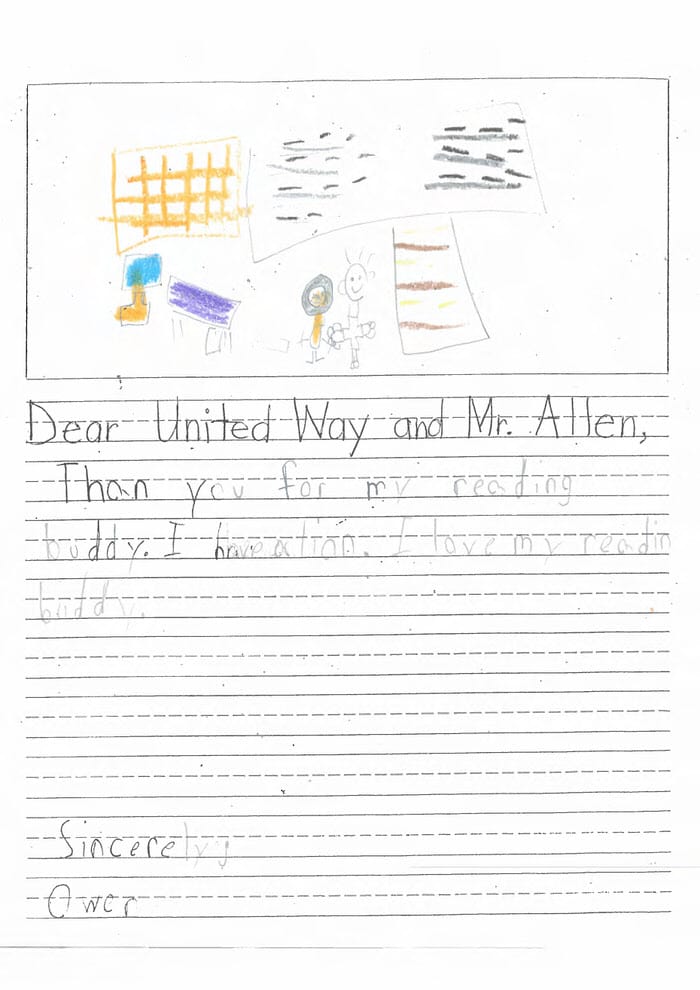 Dear United Way and Mr. Allen,
Than you for my reading
buddy. I have a lion. I love my readin
buddy.
Sincerely,
Owen